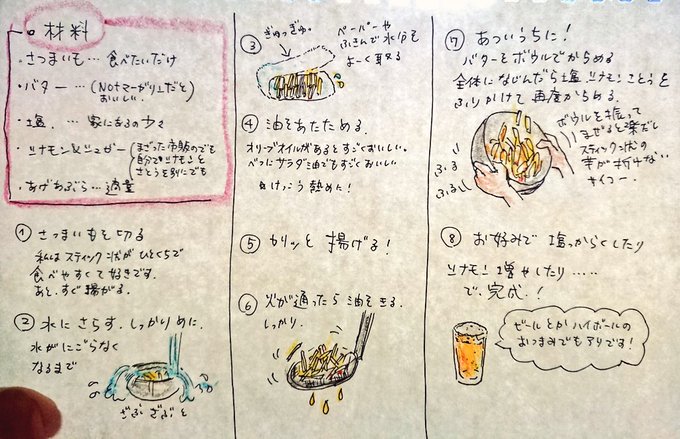 材料
・さつまいも…食べたいだけ
・バター…(Notマーガリンだと
おいしい.
・塩.…気になるの少々
・シナモン&シュガー(まざった市販のでも
自分でシナモンと
さとうを別にでも
・あげあぶら…適量
① さつまいもを切る
私はスティック状がひとくちで
食べやすくて好きです.
あと、すぐ揚がる.
② 水にさらす.しっかりめに.
水がにごらなく
なるまで
ざぶざぶと
③ ぎゅっぎゅ。
ペーパーや
ふきんで水分を
よーく取る
④ 油をあたためる.
オリーブオイルがあるとすごくおいしい。
べつにサラダ油でもすごくおいしい
けっこう熱めに!
⑤ カリッと揚げる!
⑥ 火が通ったら油をきる.
しっかり.
⑦ あついうちに!
バターをボウルでからめる
全体になじんだら塩、シナモン、さとうを
ふりかけて再度からめる.
ボウルを振って
まぜると楽だし
スティック状の
芋が折れない
サイコー.
ふる
ふる
⑧ お好みで塩っからくしたり
シナモン増やしたり……
で、完成.!
ビールとかハイボールの
おつまみでもアリです!